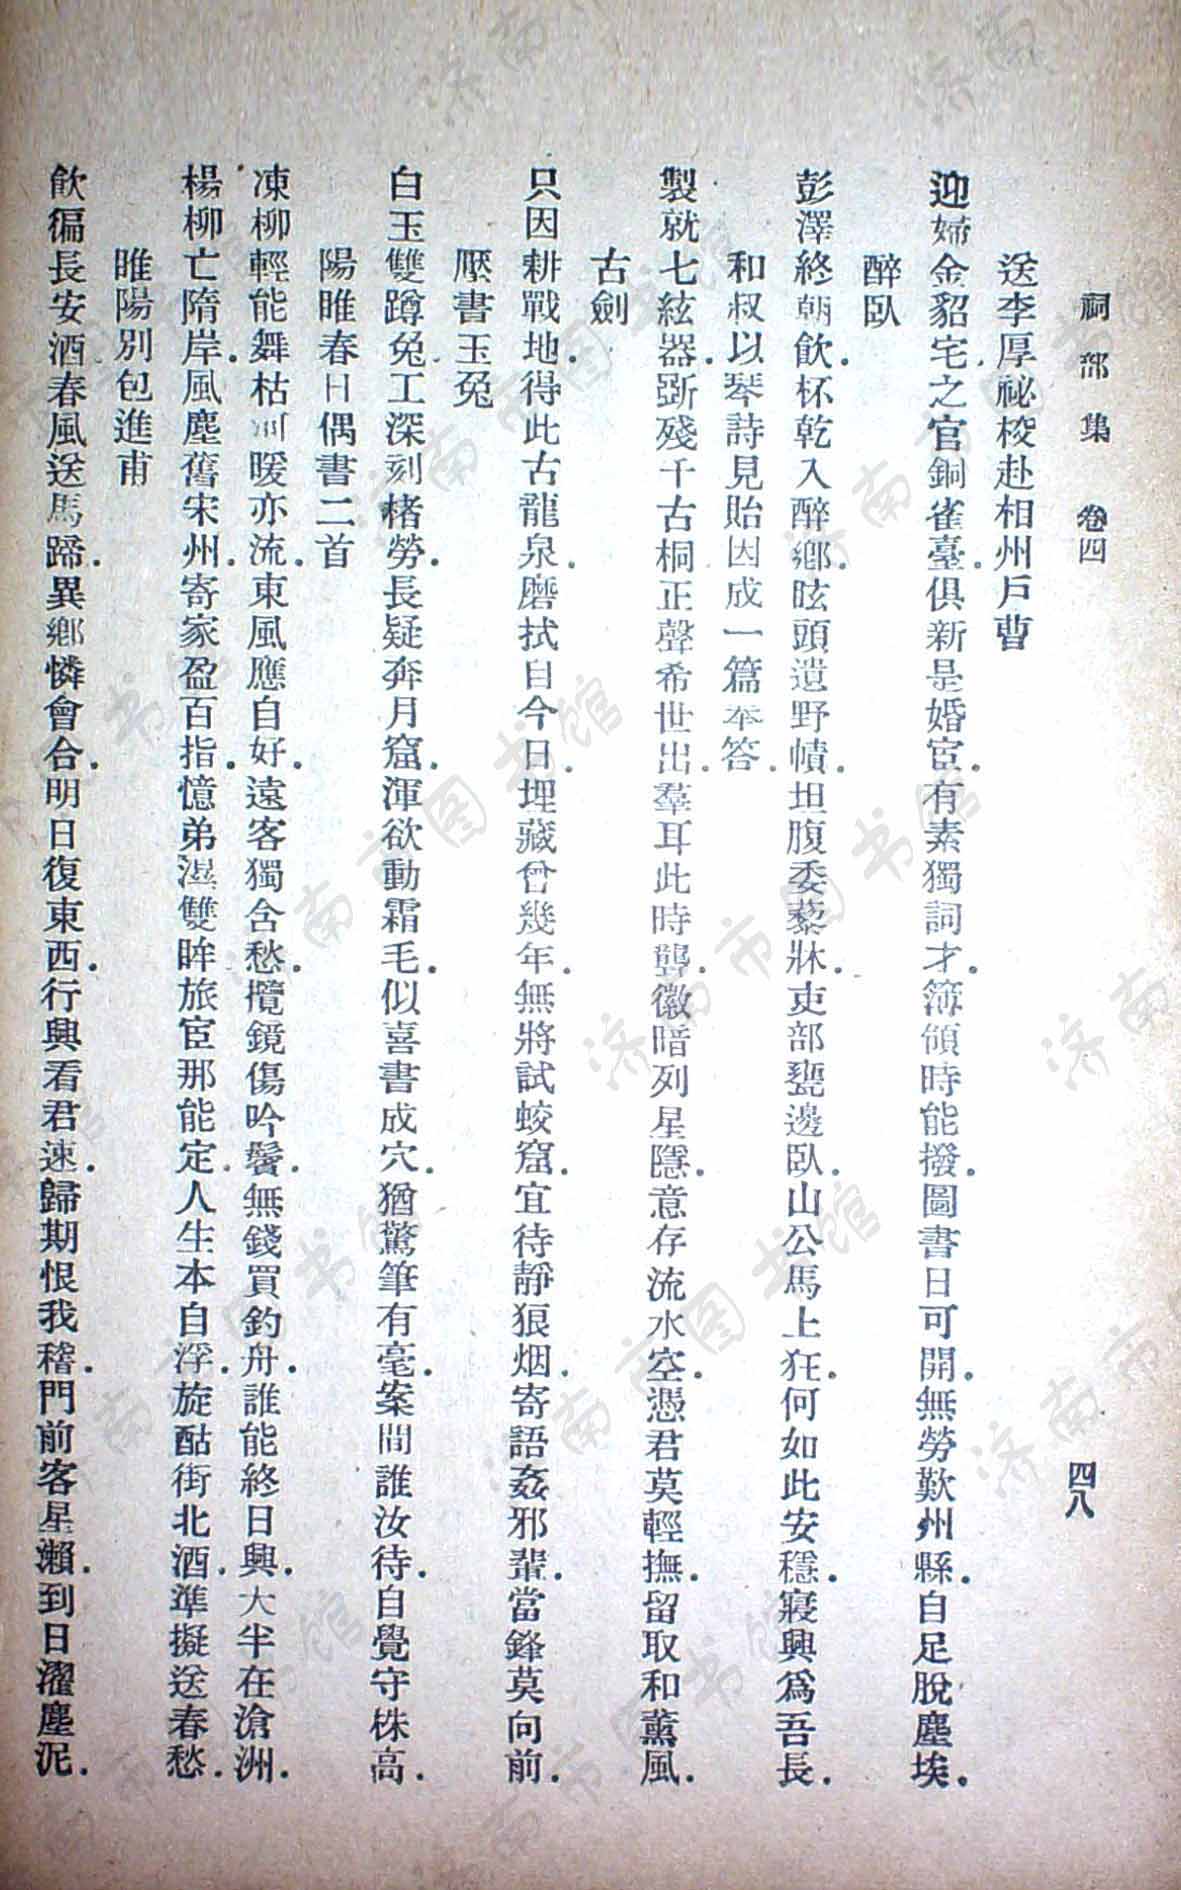 祠部集 卷四 四八
送李厚祕校赴相州戶曹
迎婦金貂宅之官銅雀臺.俱新是婚宦.有素獨詞才.簿領時能撥.圖書日可開.無勞歎州縣.自足脫塵埃.
醉臥
彭澤終朝飲.杯乾入醉鄉.眩頭遺野幘.坦腹委藜牀.吏部甕邊臥.山公馬上狂.何如此安穩.寢興爲吾長.
和叔以琴詩見貽因成一篇奉答.
製就七絃器.斲殘千古桐正聲希世出.羣耳此時聾.徽暗列星隱.意存流水空.憑君莫輕撫.留取和薰風.
古劍
只因耕戰地.得此古龍泉.磨拭自今日.埋藏曾幾年.無將試蛟窟.宜待靜狼烟.寄語姦邪輩.當鋒莫向前.
壓書玉兔
白玉雙蹲兔.工深刻楮勞.長疑奔月窟.渾欲動霜毛.似喜書成穴.猶驚筆有毫.案間誰汝待.自覺守株高.
陽睢春日偶書二首
凍柳輕能舞枯河暖亦流.東風應自好.遠客獨含愁.攬鏡傷吟鬢.無錢買釣舟.誰能終日興.大半在滄洲.
楊柳亡隋岸.風塵舊宋州.寄家盈百指.憶弟濕雙眸旅宦那能定.人生本自浮.旋酤街北酒.準擬送春愁.
睢陽別包進甫
飲徧長安酒春風送馬蹄.異鄉憐會合.明日復東西.行興看君速.歸期恨我稽.門前客星瀨.到日濯塵泥.